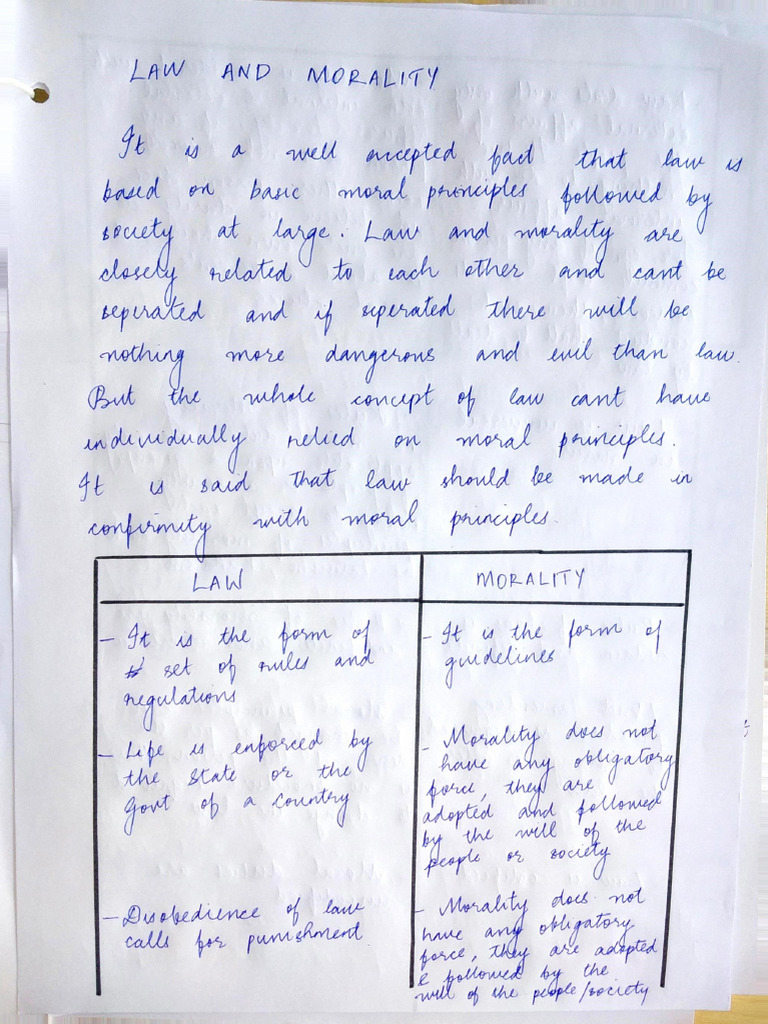 LAW AND MORALITY
It is a well accepted fact that law is
based on basic moral principles followed by
society at large. Law and morality are
closely related to each other and cant be
seperated and if seperated there will be
nothing more dangerous and evil than law.
But the whole concept of law cant have
individually relied on moral principles.
It is said that law should be made in
confirmity with moral principles.
LAW
- It is the form of
set of rules and
regulations
- Life is enforced by
the State or the
Govt of a country
- Disobedience of law
calls for punishment
MORALITY
- It is the form of
guidelines
- Morality does not
have any obligatory
force, they are
adopted and followed
by the will of the
people or society
- Morality does not
have any obligatory
force, they are adopted
& followed by the
will of the people/society